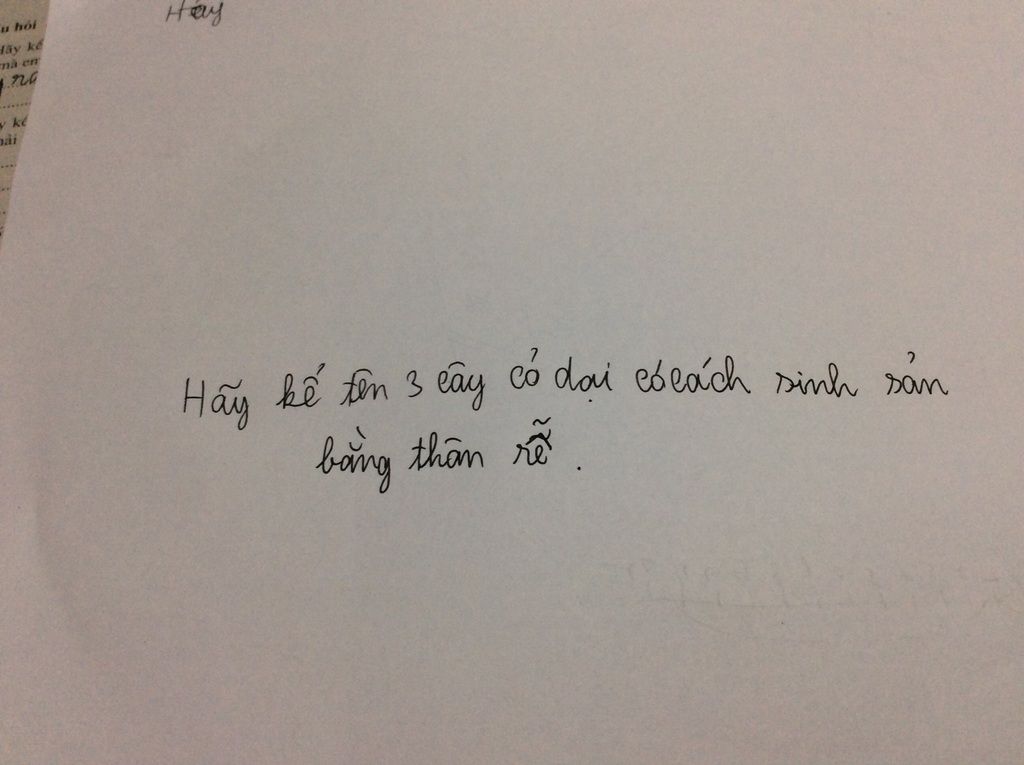 Hãy
u hỏi
Hãy kể
mà em
y kể
Hãy kể tên 3 cây cỏ dại có cách sinh sản
bằng thân rễ.